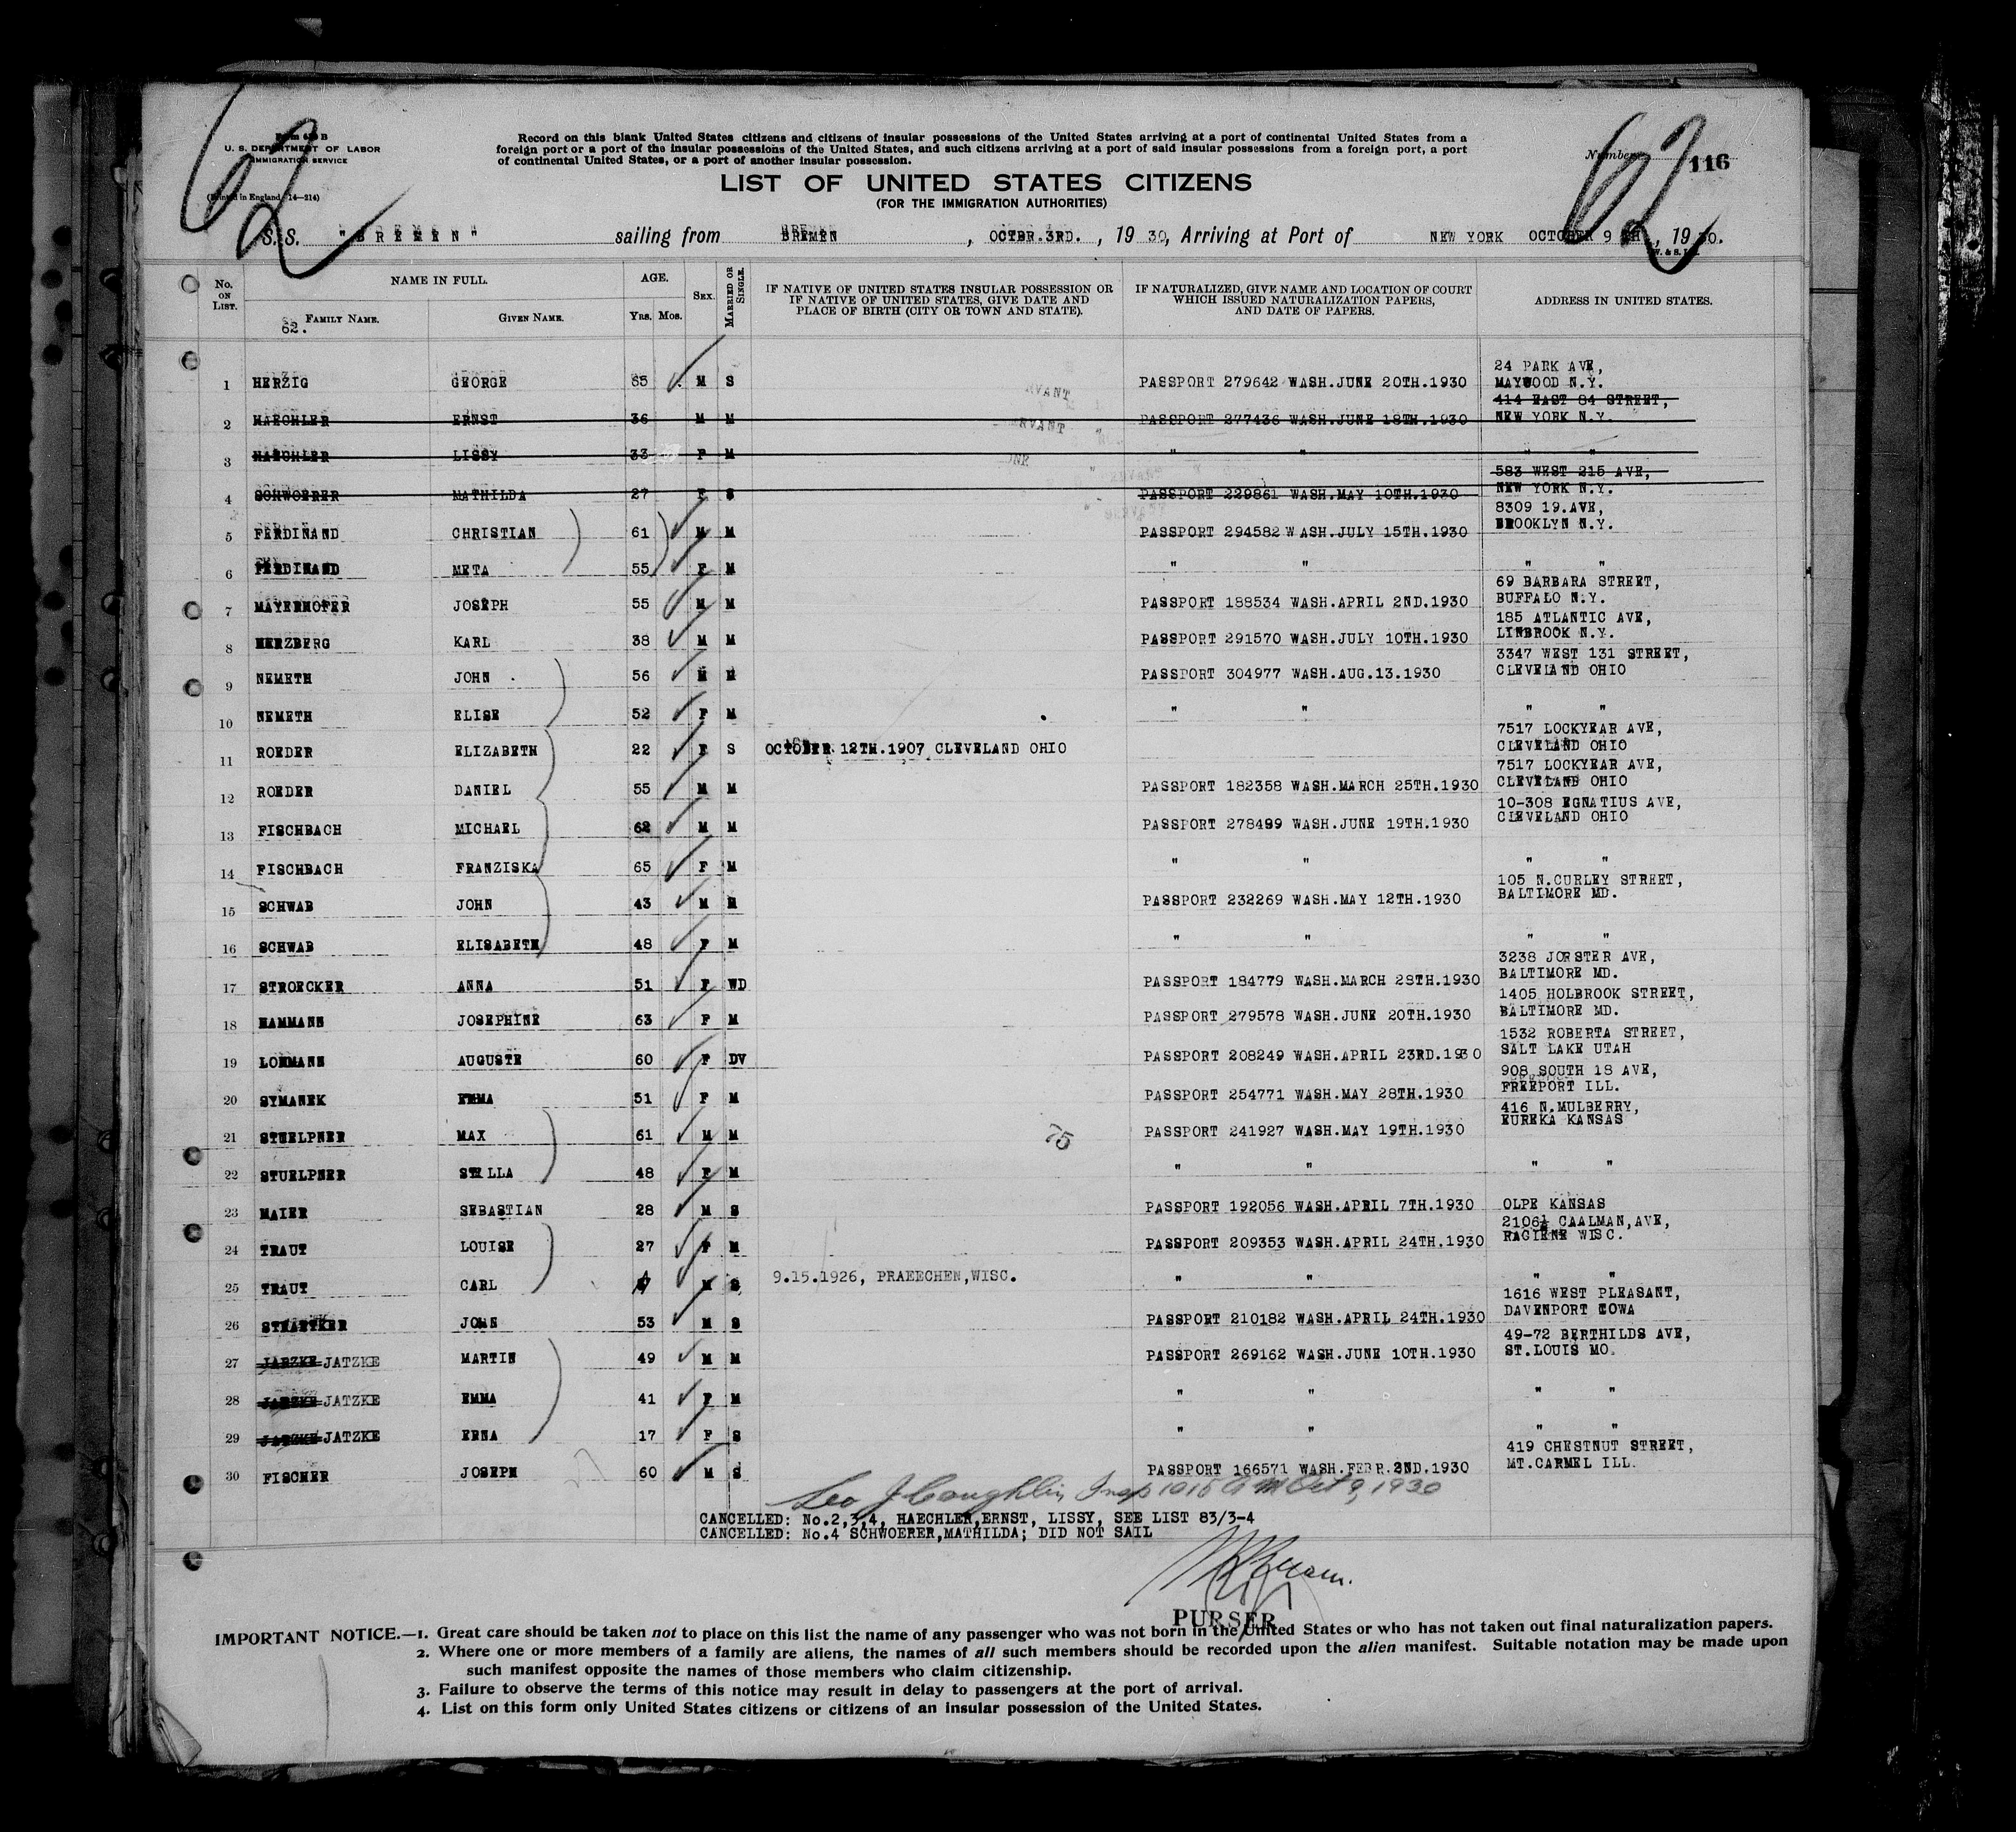 62
62
Form 630 B
U. S. DEPARTMENT OF LABOR
IMMIGRATION SERVICE
(Printed in England 14—214)
Record on this blank United States citizens and citizens of insular possessions of the United States arriving at a port of continental United States from a
foreign port or a port of the insular possessions of the United States, and such citizens arriving at a port of said insular possessions from a foreign port, a port
of continental United States, or a port of another insular possession.
Number 116
LIST OF UNITED STATES CITIZENS
(FOR THE IMMIGRATION AUTHORITIES)
S.S. "BREMEN" sailing from BREMEN, OCTBR.3RD., 1930, Arriving at Port of NEW YORK OCTOBER 9 TH, 1930.
No. ON LIST. NAME IN FULL. FAMILY NAME. GIVEN NAME. AGE. YRS. MOS. SEX. MARRIED OR SINGLE. IF NATIVE OF UNITED STATES INSULAR POSSESSION OR IF NATIVE OF UNITED STATES, GIVE DATE AND PLACE OF BIRTH (CITY OR TOWN AND STATE). IF NATURALIZED, GIVE NAME AND LOCATION OF COURT WHICH ISSUED NATURALIZATION PAPERS, AND DATE OF PAPERS. ADDRESS IN UNITED STATES.
62.
1 HERZIG GEORGE 65 M S PASSPORT 279642 WASH.JUNE 20TH.1930 24 PARK AVE, MAYWOOD N.Y.
2 HAECHLER ERNST 36 M M PASSPORT 277436 WASH.JUNE 18TH.1930 414 EAST 84 STREET, NEW YORK N.Y.
3 HAECHLER LISSY 33 F M " " " "
4 SCHWOERER MATHILDA 27 F S PASSPORT 229861 WASH.MAY 10TH.1930 583 WEST 215 AVE, NEW YORK N.Y.
5 FERDINAND CHRISTIAN 61 M M PASSPORT 294582 WASH.JULY 15TH.1930 8309 19.AVE, BROOKLYN N.Y.
6 FERDINAND META 55 F M " " " "
7 MAYERHOFER JOSEPH 55 M M PASSPORT 188534 WASH.APRIL 2ND.1930 69 BARBARA STREET, BUFFALO N.Y.
8 HERZBERG KARL 38 M M PASSPORT 291570 WASH.JULY 10TH.1930 185 ATLANTIC AVE, LINBROOK N.Y.
9 NEMETH JOHN 56 M M PASSPORT 304977 WASH.AUG.13.1930 3347 WEST 131 STREET, CLEVELAND OHIO
10 NEMETH ELISE 52 F M " " " "
11 ROEDER ELIZABETH 22 F S OCTOBER 12TH.1907 CLEVELAND OHIO 7517 LOCKYEAR AVE, CLEVELAND OHIO
12 ROEDER DANIEL 55 M M PASSPORT 182358 WASH.MARCH 25TH.1930 7517 LOCKYEAR AVE, CLEVELAND OHIO
13 FISCHBACH MICHAEL 62 M M PASSPORT 278499 WASH.JUNE 19TH.1930 10-308 EGNATIUS AVE, CLEVELAND OHIO
14 FISCHBACH FRANZISKA 65 F M " " " "
15 SCHWAB JOHN 43 M M PASSPORT 232269 WASH.MAY 12TH.1930 105 N.CURLEY STREET, BALTIMORE MD.
16 SCHWAB ELISABETH 48 F M " " " "
17 STROECKER ANNA 51 F WD PASSPORT 184779 WASH.MARCH 28TH.1930 3238 JORSTER AVE, BALTIMORE MD.
18 HAMMANN JOSEPHINE 63 F M PASSPORT 279578 WASH.JUNE 20TH.1930 1405 HOLBROOK STREET, BALTIMORE MD.
19 LOHMANN AUGUSTE 60 F DV PASSPORT 208249 WASH.APRIL 23RD.1930 1532 ROBERTA STREET, SALT LAKE UTAH
20 SYMANEK EMMA 51 F M PASSPORT 254771 WASH.MAY 28TH.1930 908 SOUTH 18 AVE, FREEPORT ILL.
21 STUELPNER MAX 61 M M 75 PASSPORT 241927 WASH.MAY 19TH.1930 416 N.MULBERRY, EUREKA KANSAS
22 STUELPNER STELLA 48 F M " " " "
23 MAIER SEBASTIAN 28 M S PASSPORT 192056 WASH.APRIL 7TH.1930 OLPE KANSAS
24 TRAUT LOUISE 27 F M PASSPORT 209353 WASH.APRIL 24TH.1930 2106½ CAALMAN,AVE, RACIENE WISC.
25 TRAUT CARL 4 M S 9.15.1926, PRAEECHEN,WISC. " " " "
26 JOHN 53 M S PASSPORT 210182 WASH.APRIL 24TH.1930 1616 WEST PLEASANT, DAVENPORT IOWA
27 JARZKE JATZKE MARTIN 49 M M PASSPORT 269162 WASH.JUNE 10TH.1930 49-72 BERTHILDS AVE, ST.LOUIS MO.
28 JARZKE JATZKE EMMA 41 F M " " " "
29 JARZKE JATZKE ERNA 17 F S " " " "
30 FISCHER JOSEPH 60 M S PASSPORT 166571 WASH.FEBR.2ND.1930 419 CHESTNUT STREET, MT.CARMEL ILL.
Leo J Coughlin Insp 1015 AM Oct 9, 1930
CANCELLED: No.2,3,4, HAECHLER,ERNST, LISSY, SEE LIST 83/3-4
CANCELLED: No.4 SCHWOERER,MATHILDA; DID NOT SAIL
PURSER
IMPORTANT NOTICE.—1. Great care should be taken not to place on this list the name of any passenger who was not born in the United States or who has not taken out final naturalization papers.
2. Where one or more members of a family are aliens, the names of all such members should be recorded upon the alien manifest. Suitable notation may be made upon
such manifest opposite the names of those members who claim citizenship.
3. Failure to observe the terms of this notice may result in delay to passengers at the port of arrival.
4. List on this form only United States citizens or citizens of an insular possession of the United States.